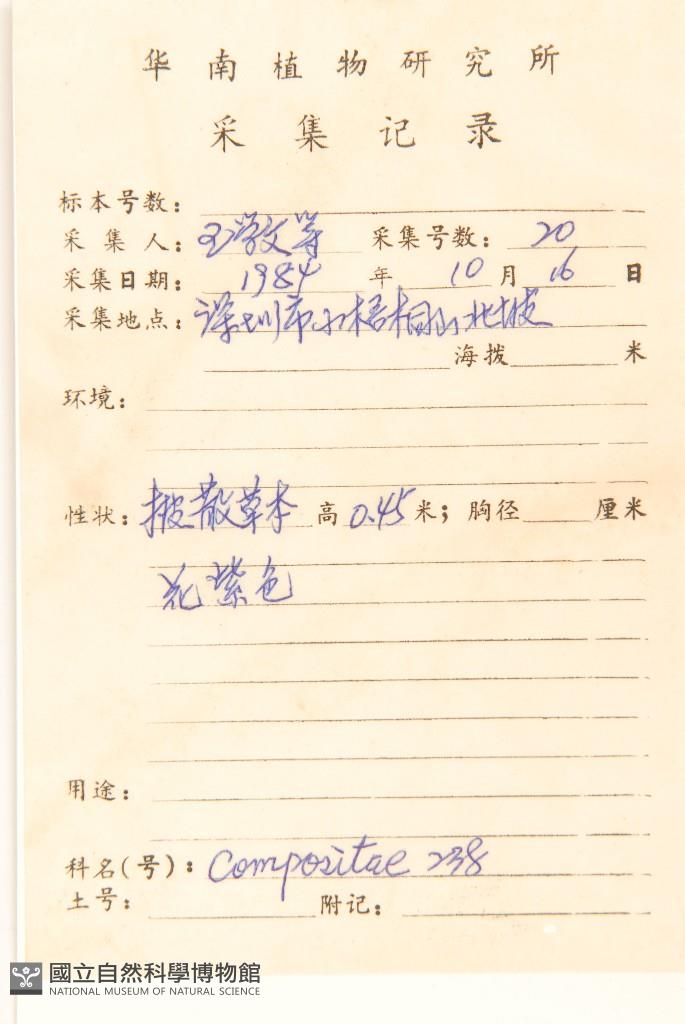 华南植物研究所
采集记录
标本号数：
采集人：王学文等 采集号数：20
采集日期：1984年10月16日
采集地点：深圳市小梧桐山北坡
海拨 米
环境：
性状：披散草本 高0.45米；胸径 厘米
花紫色
用途：
科名(号)：Compositae 238
土号： 附记：
國立自然科學博物館
NATIONAL MUSEUM OF NATURAL SCIENCE